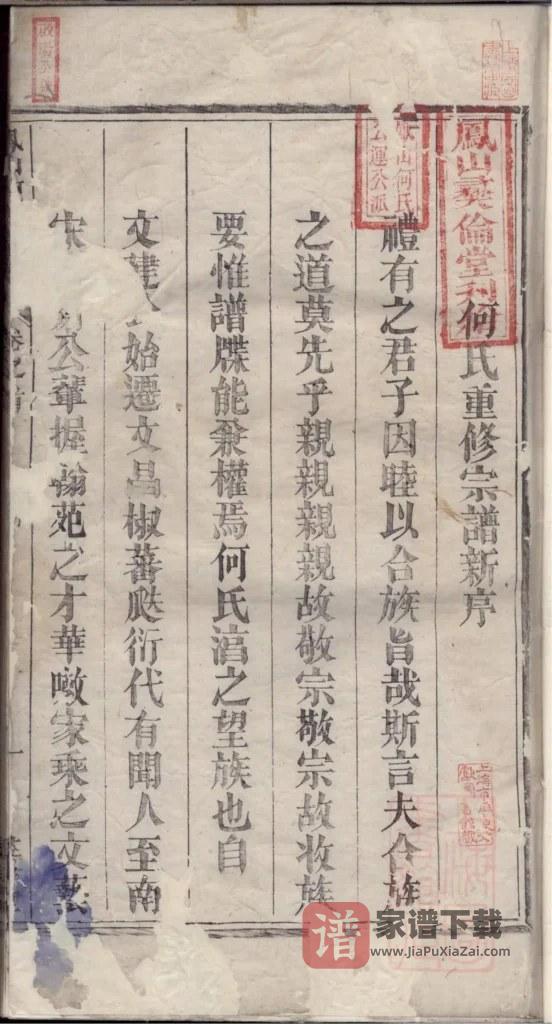 鳳山彝倫堂刊
何氏重修宗譜新序
鳳山何氏
公運公派
禮有之君子因睦以合族旨哉斯言夫合族
之道莫先乎親親親親故敬宗敬宗故收族
要惟譜牒能兼權焉何氏淯之望族也自
文建 始遷文昌椒蕃瓞衍代有聞人至南
宋 公輩握翰苑之才華噉家乘之文藝
卷之首
一
谱 家谱下载
www.JiaPuXiaZai.com